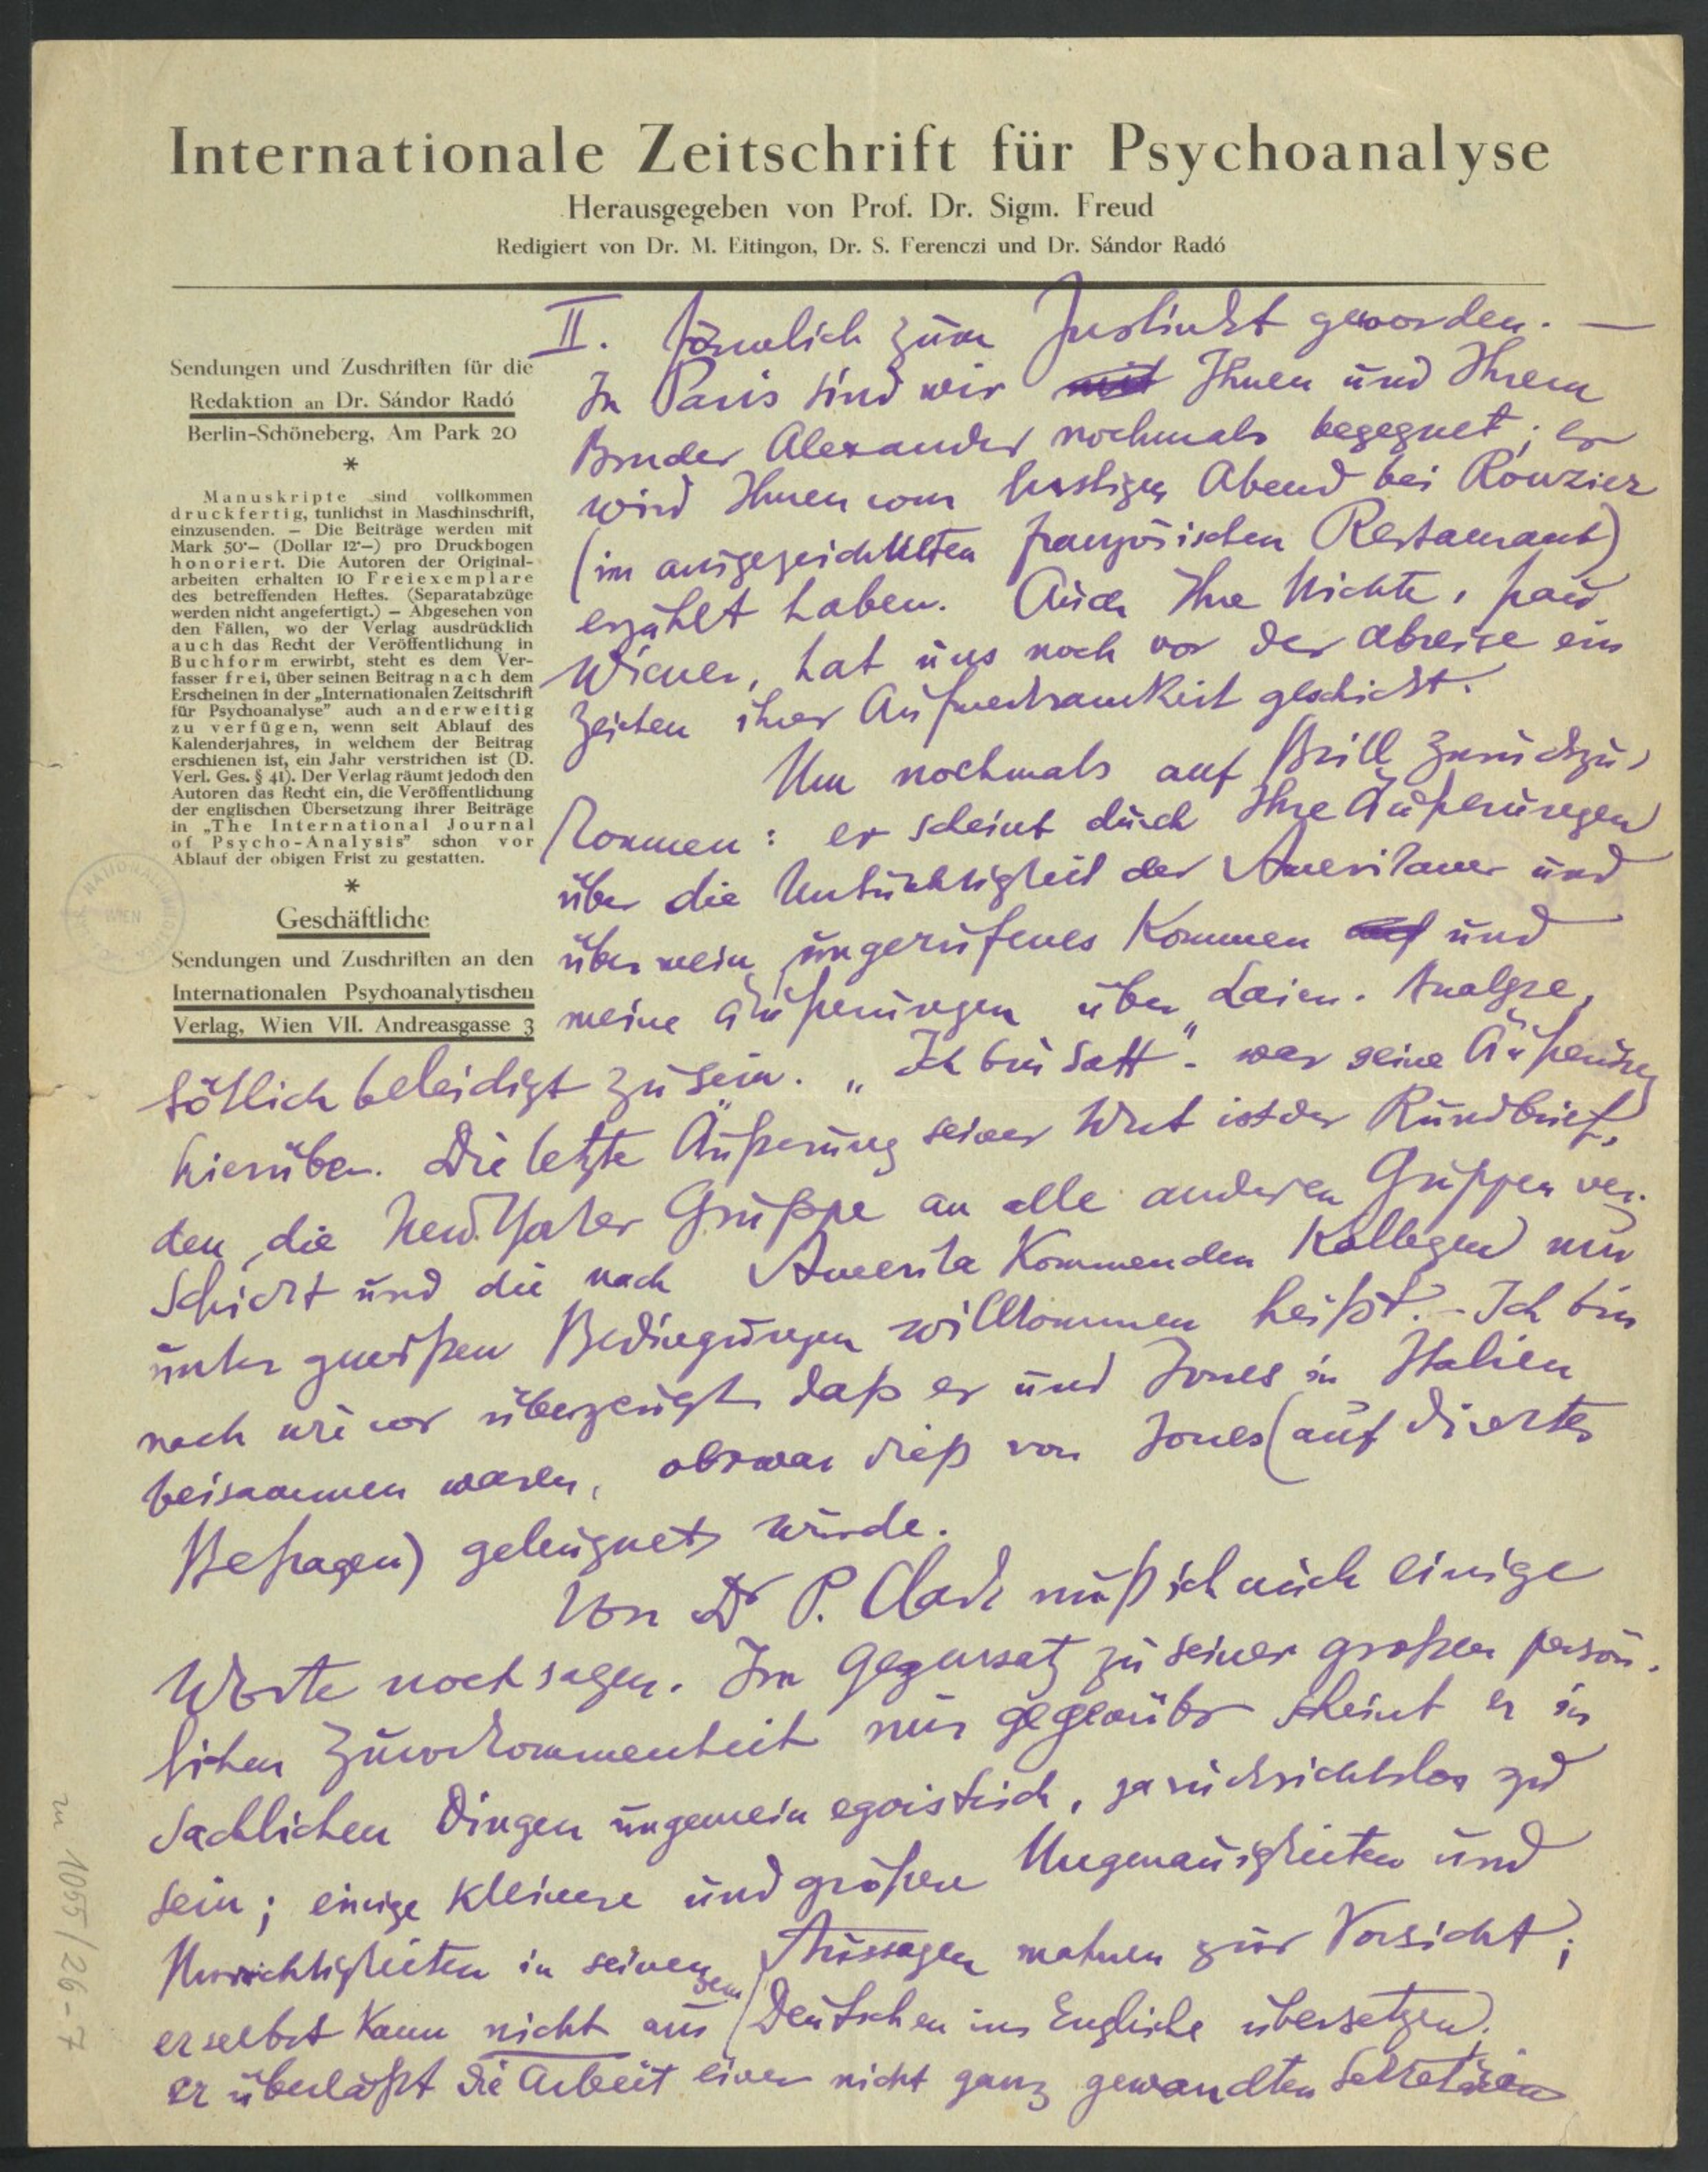 Internationale Zeitschrift für Psychoanalyse
Herausgegeben von Prof. Dr. Sigm. Freud
Redigiert von Dr. M. Eitingon, Dr. S. Ferenczi und Dr. Sándor Radó
Sendungen und Zuschriften für die
Redaktion an Dr. Sándor Radó
Berlin-Schöneberg, Am Park 20
*
Manuskripte sind vollkommen
druckfertig, tunlichst in Maschinschrift,
einzusenden. — Die Beiträge werden mit
Mark 50·— (Dollar 12·—) pro Druckbogen
honoriert. Die Autoren der Original-
arbeiten erhalten 10 Freiexemplare
des betreffenden Heftes. (Separatabzüge
werden nicht angefertigt.) — Abgesehen von
den Fällen, wo der Verlag ausdrücklich
auch das Recht der Veröffentlichung in
Buchform erwirbt, steht es dem Ver-
fasser frei, über seinen Beitrag nach dem
Erscheinen in der „Internationalen Zeitschrift
für Psychoanalyse" auch anderweitig
zu verfügen, wenn seit Ablauf des
Kalenderjahres, in welchem der Beitrag
erschienen ist, ein Jahr verstrichen ist (D.
Verl. Ges. § 41). Der Verlag räumt jedoch den
Autoren das Recht ein, die Veröffentlichung
der englischen Übersetzung ihrer Beiträge
in „The International Journal
of Psycho-Analysis" schon vor
Ablauf der obigen Frist zu gestatten.
*
Geschäftliche
Sendungen und Zuschriften an den
Internationalen Psychoanalytischen
Verlag, Wien VII. Andreasgasse 3
II. förmlich zum Instinkt geworden. —
In Paris sind wir mit Ihnen und Ihrem
Bruder Alexander nochmals begegnet; er
wird Ihnen vom lustigen Abend bei Rouzier
(im ausgezeichneten französischen Restaurant)
erzählt haben. Auch Ihre Nichte, Frau
Wiener, hat uns noch vor der Abreise ein
Zeichen ihrer Aufmerksamkeit geschickt.
Um nochmals auf Brill zurückzu-
kommen: er scheint durch Ihre Äußerungen
über die Untüchtigkeit der Amerikaner und
über mein ungerufenes Kommen auf und
meine Äußerungen über Laien-Analyse,
tötlich beleidigt zu sein. „Ich bin satt" - war seine Äußerung
hierüber. Die letzte Äußerung seiner Wut ist der Rundbrief,
den die New Yorker Gruppe an alle anderen Gruppen ver-
schickt und die nach Amerika kommenden Kollegen nur
unter gewißen Bedingungen willkommen heißt. - Ich bin
nach wie vor überzeugt, daß er und Jones in Italien
beisammen waren, obzwar dieß von Jones (auf direktes
Befragen) geleugnet wurde.
Von Dr P. Clark muß ich auch einige
Worte noch sagen. Im Gegensatz zu seiner großen persön-
lichen Zuvorkommenheit mir gegenüber scheint er in
sachlichen Dingen ungemein egoistisch, ja rücksichtslos zu
sein; einige kleinere und größere Ungenauigkeiten und
Unrichtigkeiten in seinen Aussagen mahnen zur Vorsicht;
er selbst kann nicht aus dem Deutschen ins Englische übersetzen;
er überläßt die Arbeit einer nicht ganz gewandten Sekretärin
zu 1055/26-7
WIEN